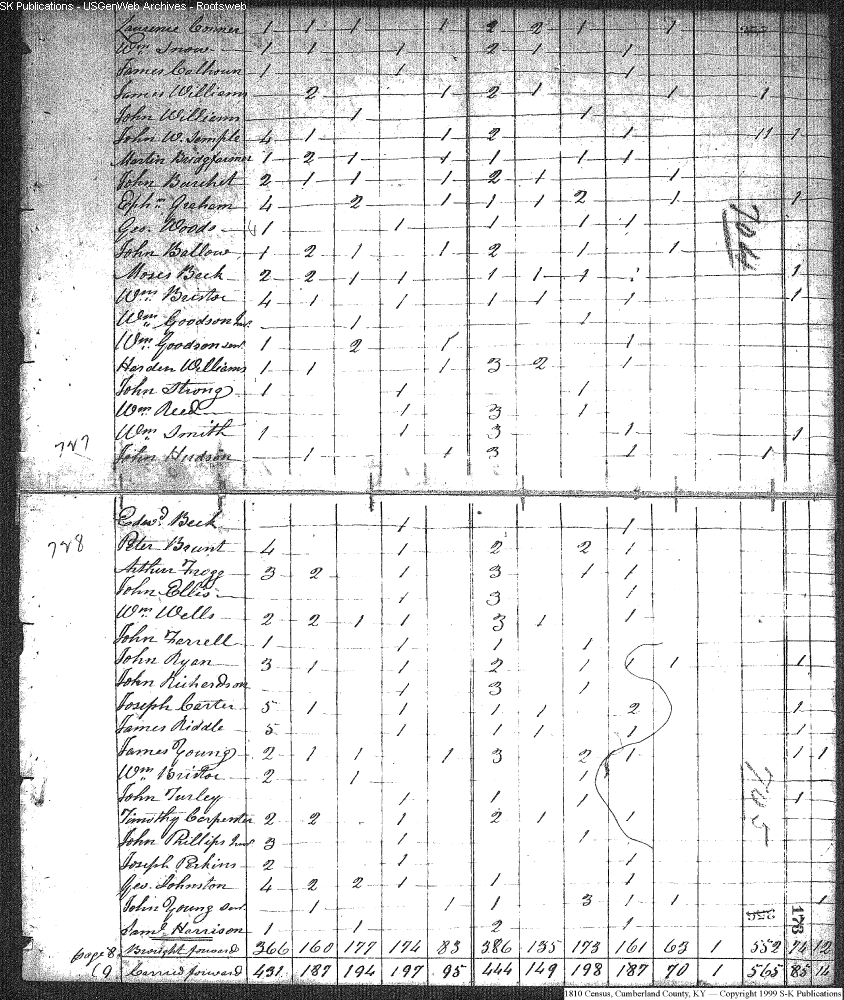 SK Publications - USGenWeb Archives - Rootsweb
Laurence Conner 1 1 1 1 2 2 1 1
Wm Snow 1 1 1 2 1 1
James Calhoun 1 1 1
James Williams 2 1 2 1 1 1
John Williams 1 1
John W. Semple 4 1 1 2 1 11 1
Martin 1 2 1 1 1 1 1
John Barchet 2 1 1 1 2 1 1
Ephm Graham 4 2 1 1 1 2 1 1
Geo. Woods 1 1 1 1 1
John Ballow 1 2 1 1 2 1 1
704
Moses Beck 2 2 1 1 1 1 1 1 1
Wm. Bristoe 4 1 1 1 1 1 1
Wm. Goodson Junr. 1 1
Wm. Goodson senr. 1 2 1 1
Harden Williams 1 1 1 3 2 1
John Strong 1 1 1
Wm. Reed 1 3 1
Wm. Smith 1 1 3 1 1
747
John Hudson 1 1 3 1 1
Edwd. Beck 1 1
748
Peter Brunt 4 1 2 2 1
Arthur Frogg 3 2 1 3 1 1
John Ellis 1 3 1
Wm. Wells 2 2 1 1 3 1 1
John Ferrell 1 1 1 1
John Ryan 3 1 1 2 1 1 1 1
John Richardson 1 3 1
Joseph Carter 5 1 1 1 1 2 1
James Riddle 5 1 1 1 1 1
James Young 2 1 1 1 3 2 1 1 1
Wm. Bristoe 2 1 1
705
John Turley 1 1 1 1
Timothy Carpenter 2 2 1 2 1 1
John Phillips Junr 3 1 1
Joseph Perkins 2 1 1
Geo. Johnston 4 2 2 1 1 1
John Young Senr. 1 1 1 3 1 1 1
236 173
Saml. Harrison 1 1 2 1
page 8 Brought forward 366 160 177 174 83 386 135 173 161 63 1 552 74 12
(9 Carried forward 431 187 194 197 95 444 149 198 187 70 1 565 85 14
1810 Census, Cumberland County, KY — Copyright 1999 S-K Publications